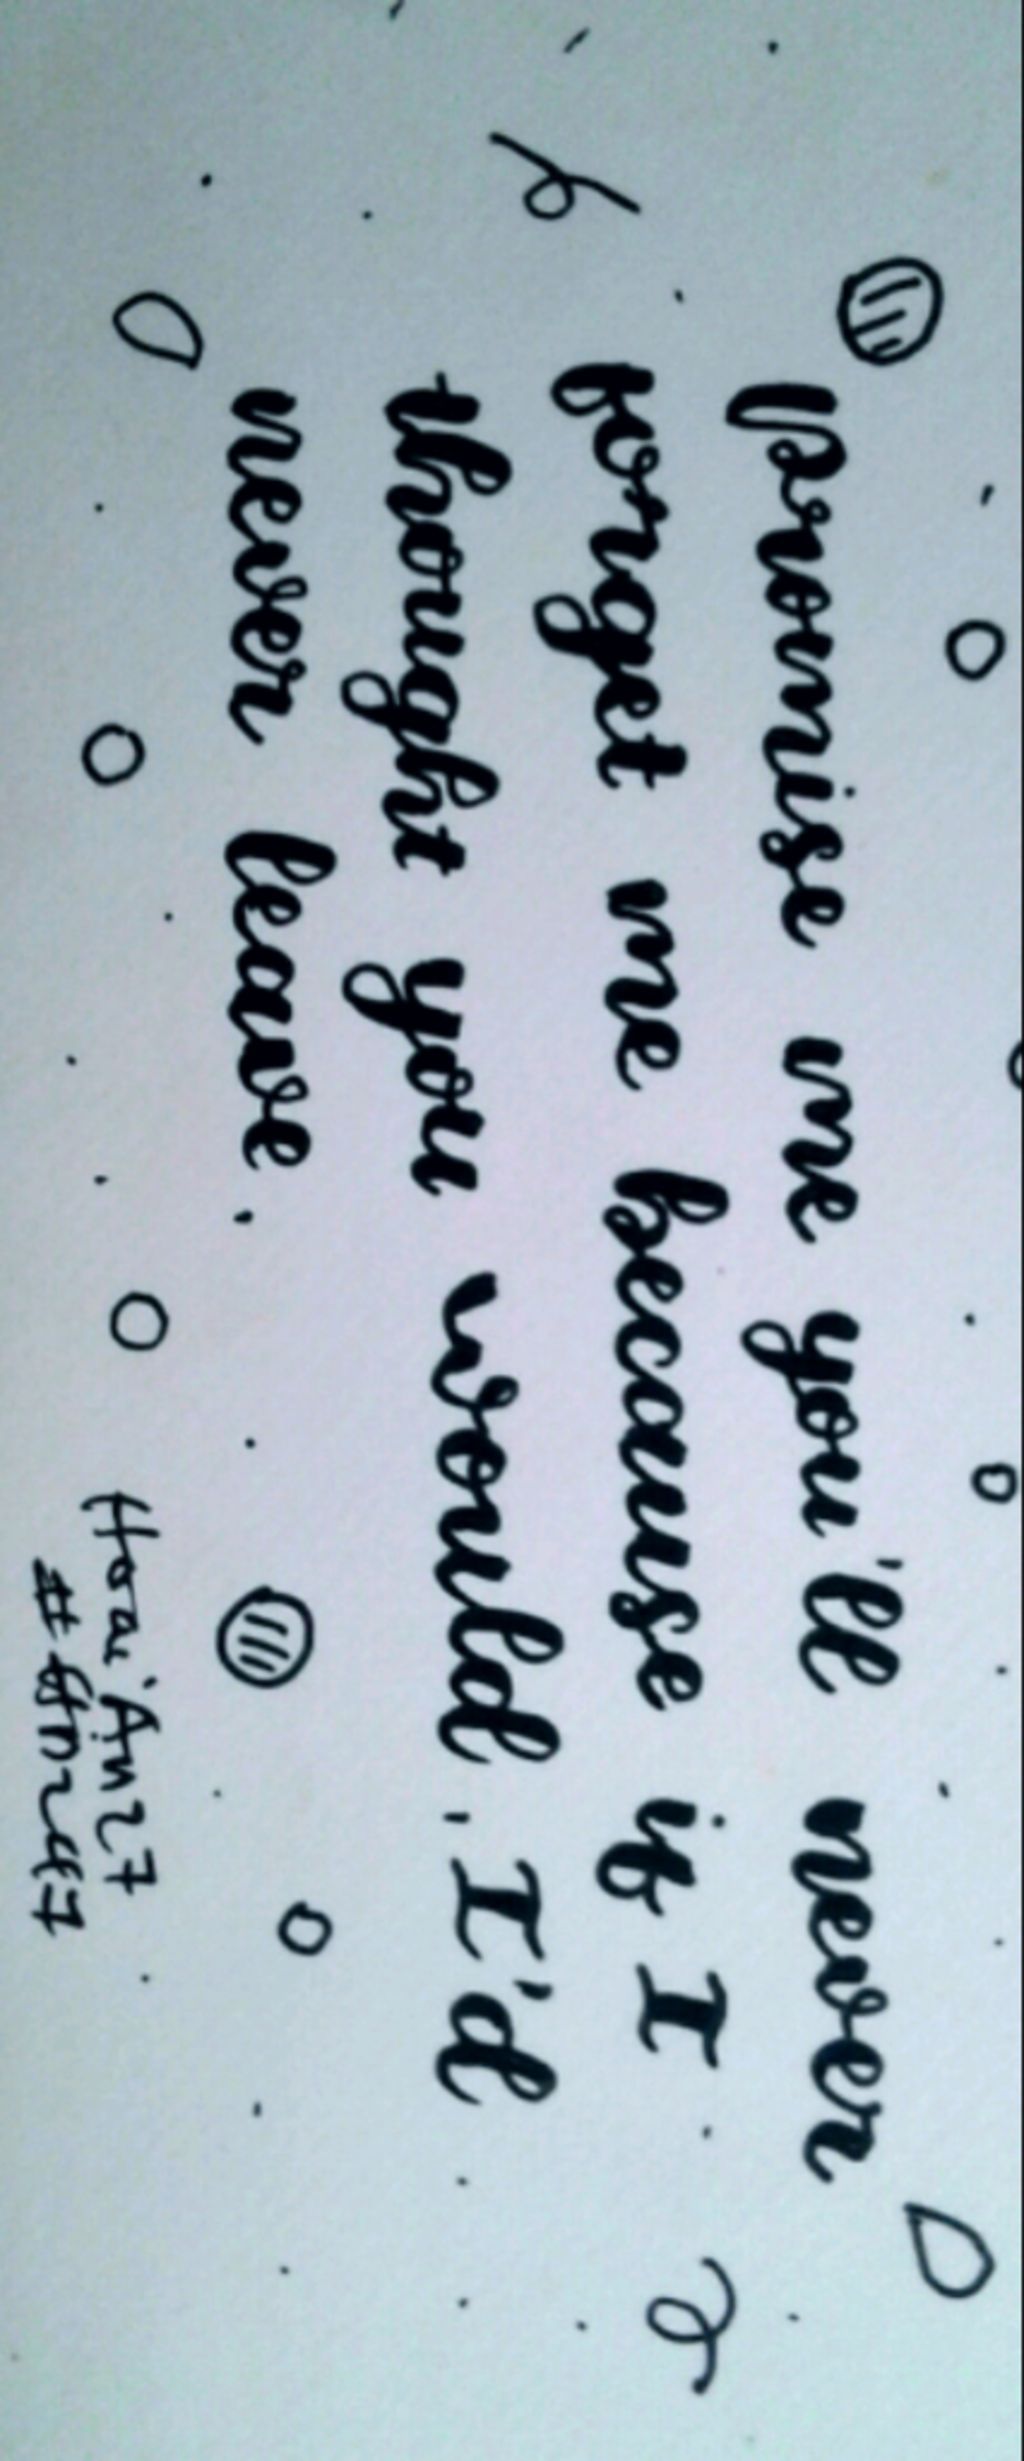 promise me you'll never
forget me because if I
thought you would, I'd
never leave.